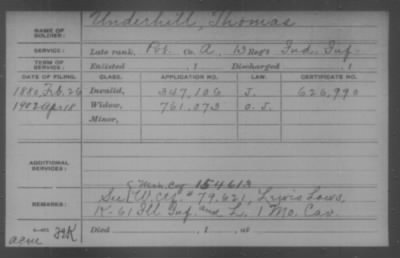 NAME OF SOLDIER: Underhill, Thomas
SERVICE: Late rank, Pvt. Co. A, 13 Reg't Ind. Inf.
TERM OF SERVICE: Enlisted , 1 Discharged , 1
DATE OF FILING. CLASS. APPLICATION NO. LAW. CERTIFICATE NO.
1880, Feb. 26 Invalid, 347,106 J. 626,990
1902 Apr 18 Widow, 761,073 O.J.
Minor,
ADDITIONAL SERVICES:
154613
REMARKS: See W. Ctf. # 79,621, Lewis Laws,
K-61 Ill Inf. and L. 1 Mo. Cav.
Died , 1 , at